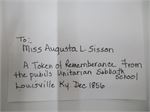 To:
Miss Augusta L. Sisson
A Token of Rememberance from
the pubils Unitarian Sabbath School
Louisville Ky. Dec 1856